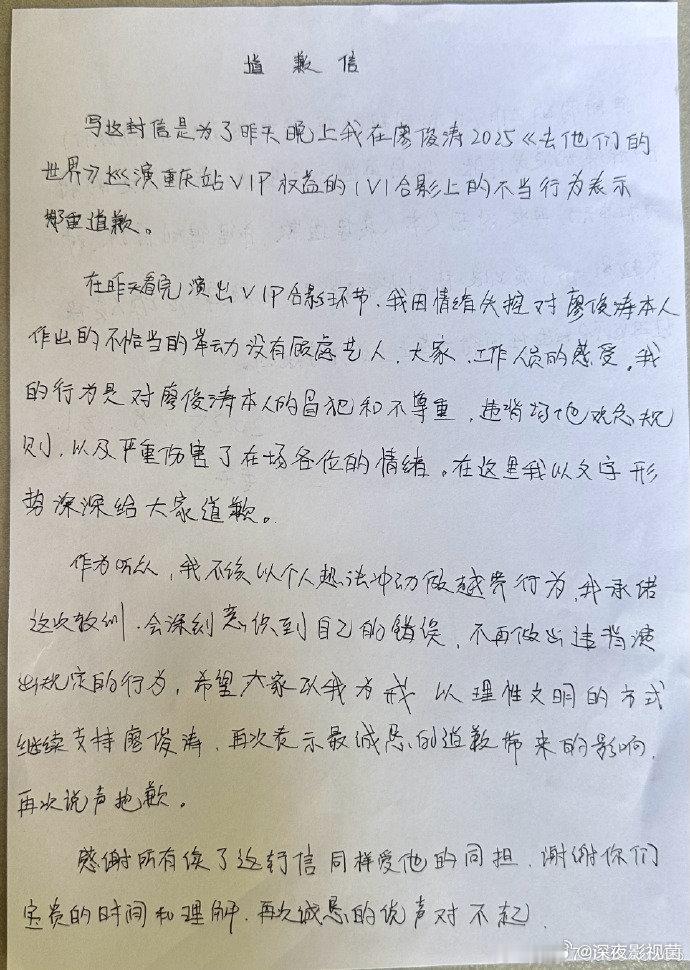 道歉信
写这封信是为了昨天晚上我在廖俊涛2025《去他们的
世界》巡演重庆站VIP权益的1V1合影上的不当行为表示
郑重道歉。
在昨天看完演出VIP合影环节,我因情绪失控对廖俊涛本人
作出的不恰当的举动没有顾虑艺人、大家、工作人员的感受。我
的行为是对廖俊涛本人的冒犯和不尊重,违背观念规
则,以及严重伤害了在场各位的情绪。在这里我以文字形
势深深给大家道歉。
作为听众,我不该以个人想法冲动做越界行为,我承诺
这次教训.会深刻意识到自己的错误,不再做出违背演
出规定的行为,希望大家以我为戒 以理性文明的方式
继续支持廖俊涛,再次表示最诚恳的道歉带来的影响,
再次说声抱歉。
感谢所有读了这封信同样爱他的同担,谢谢你们
宝贵的时间和理解.再次诚恳的说声对不起.
@深夜影视菌